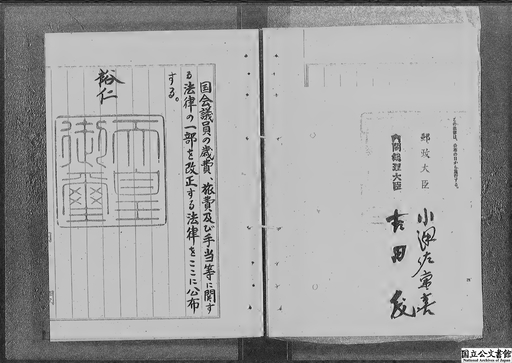 この法律は、公布の日から施行する。
郵政大臣
小沢佐重喜
内閣総理大臣
吉田茂
国会議員の歳費、旅費及び手当等に関す
る法律の一部を改正する法律をここに公布
する。
裕仁
天皇
御璽
国立公文書館
National Archives of Japan